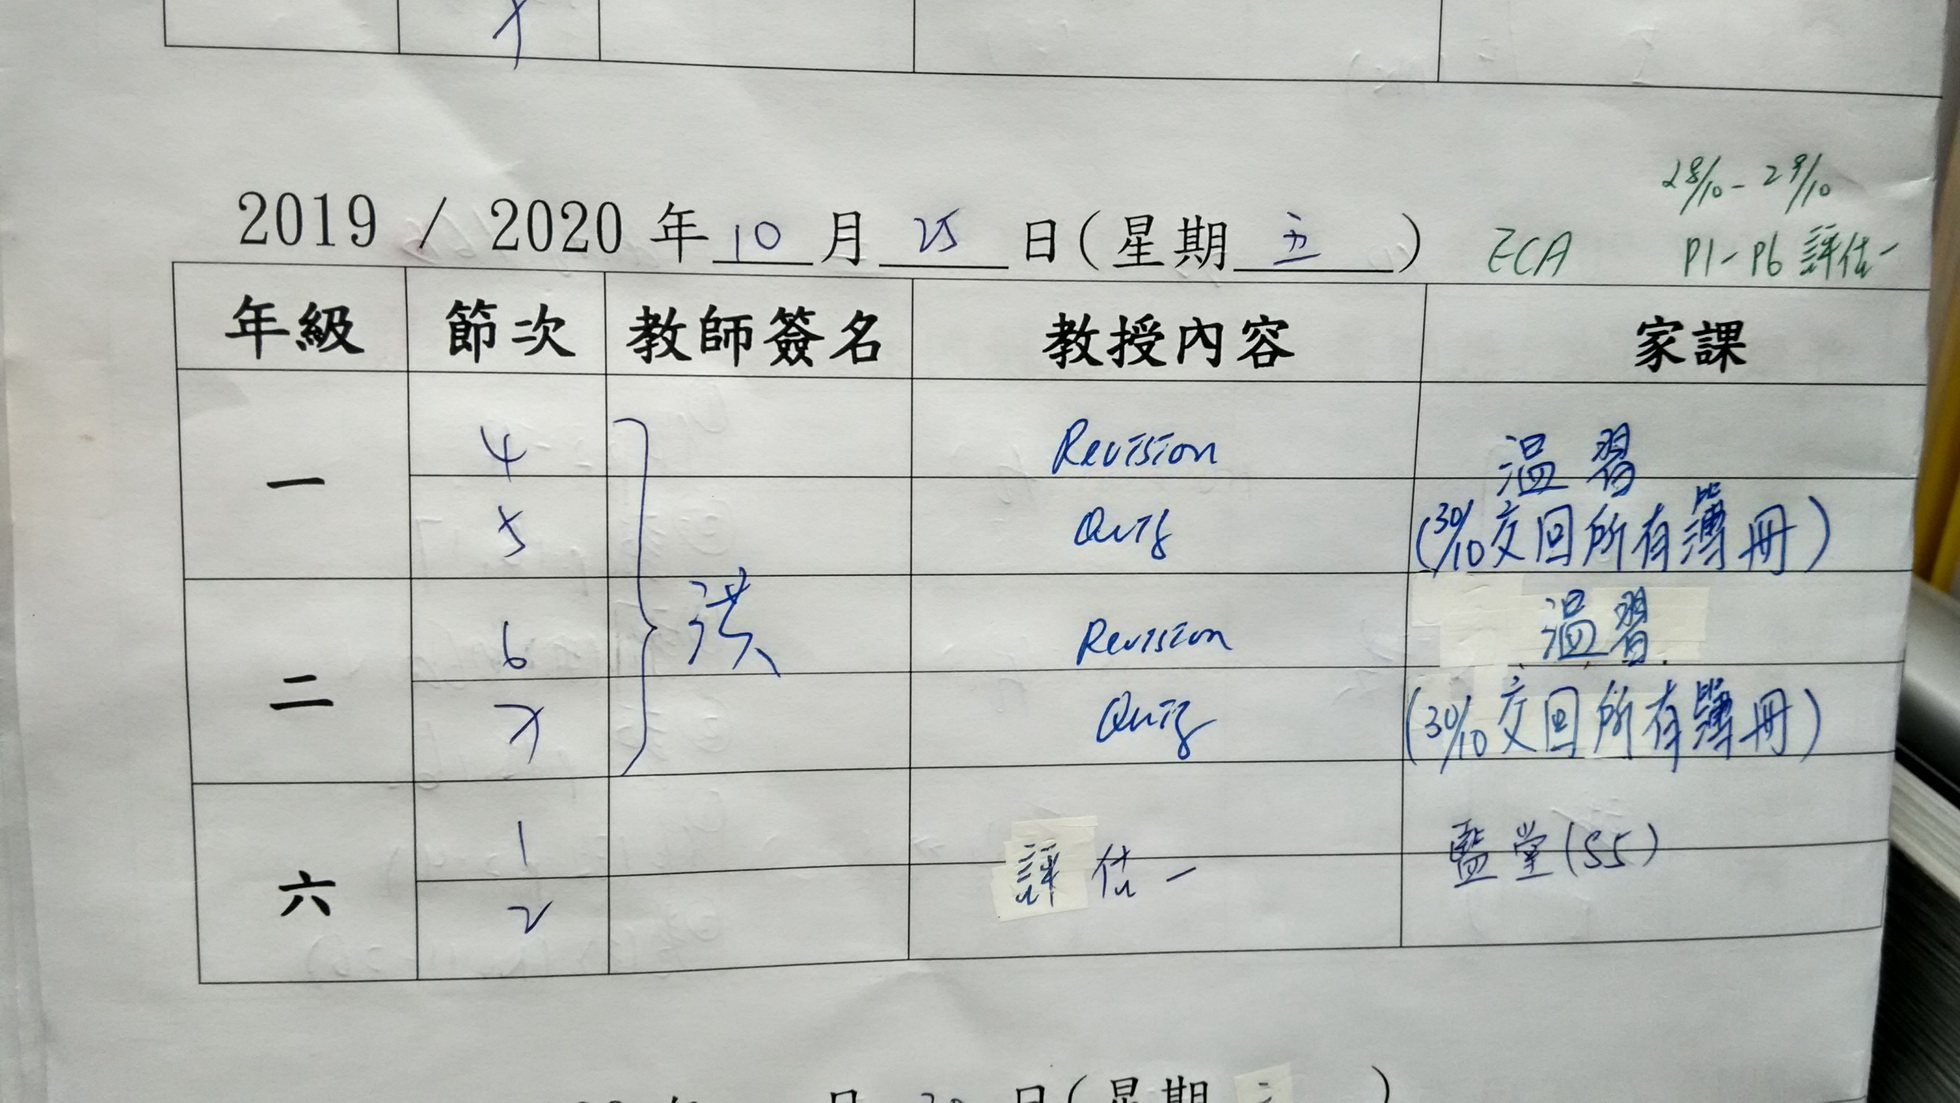 28/10 - 29/10
2019 / 2020 年 10 月 25 日(星期 五 ) ECA P1-P6 評估一
年級 節次 教師簽名 教授內容 家課
一 4 Revision 溫習
5 Quiz (30/10 交回所有簿冊)
洪
二 6 Revision 溫習
7 Quiz (30/10 交回所有簿冊)
六 1 評估一 監堂(S5)
2
月 30 日(星期 )